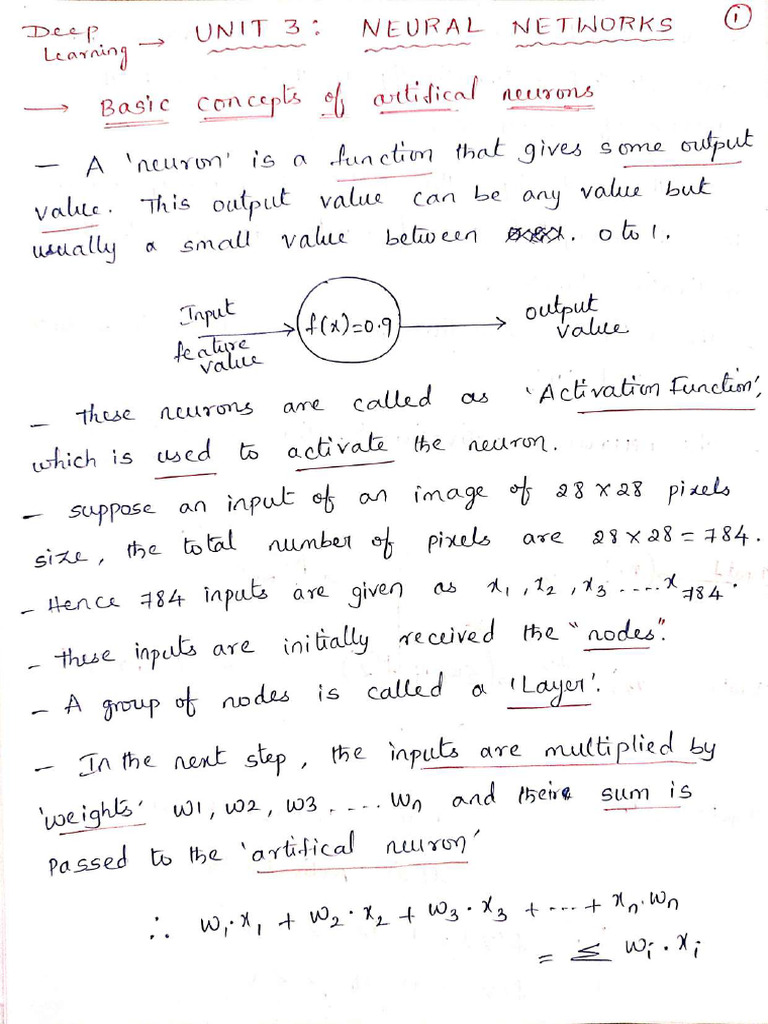 Deep Learning → UNIT 3: NEURAL NETWORKS ①
→ Basic concepts of artifical neurons
- A 'neuron' is a function that gives some output
value. This output value can be any value but
usually a small value between 0 to 1.
Input feature value
f(x)=0.9
output value
- These neurons are called as 'Activation Function',
which is used to activate the neuron.
- suppose an input of an image of 28 × 28 pixels
size, the total number of pixels are 28 × 28 = 784.
- Hence 784 inputs are given as x1, x2, x3 .....x784.
- these inputs are initially received the "nodes".
- A group of nodes is called a 'Layer'.
- In the next step, the inputs are multiplied by
'weights' w1, w2, w3 ..... wn and their sum is
passed to the 'artifical neuron'
∴ w1·x1 + w2·x2 + w3·x3 + ... + xn·wn
= Σ wi·xi